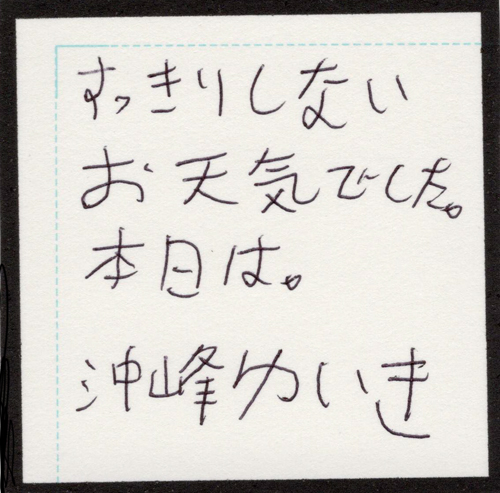 すっきりしない
お天気でした。
本日は。
沖峰ゆいき